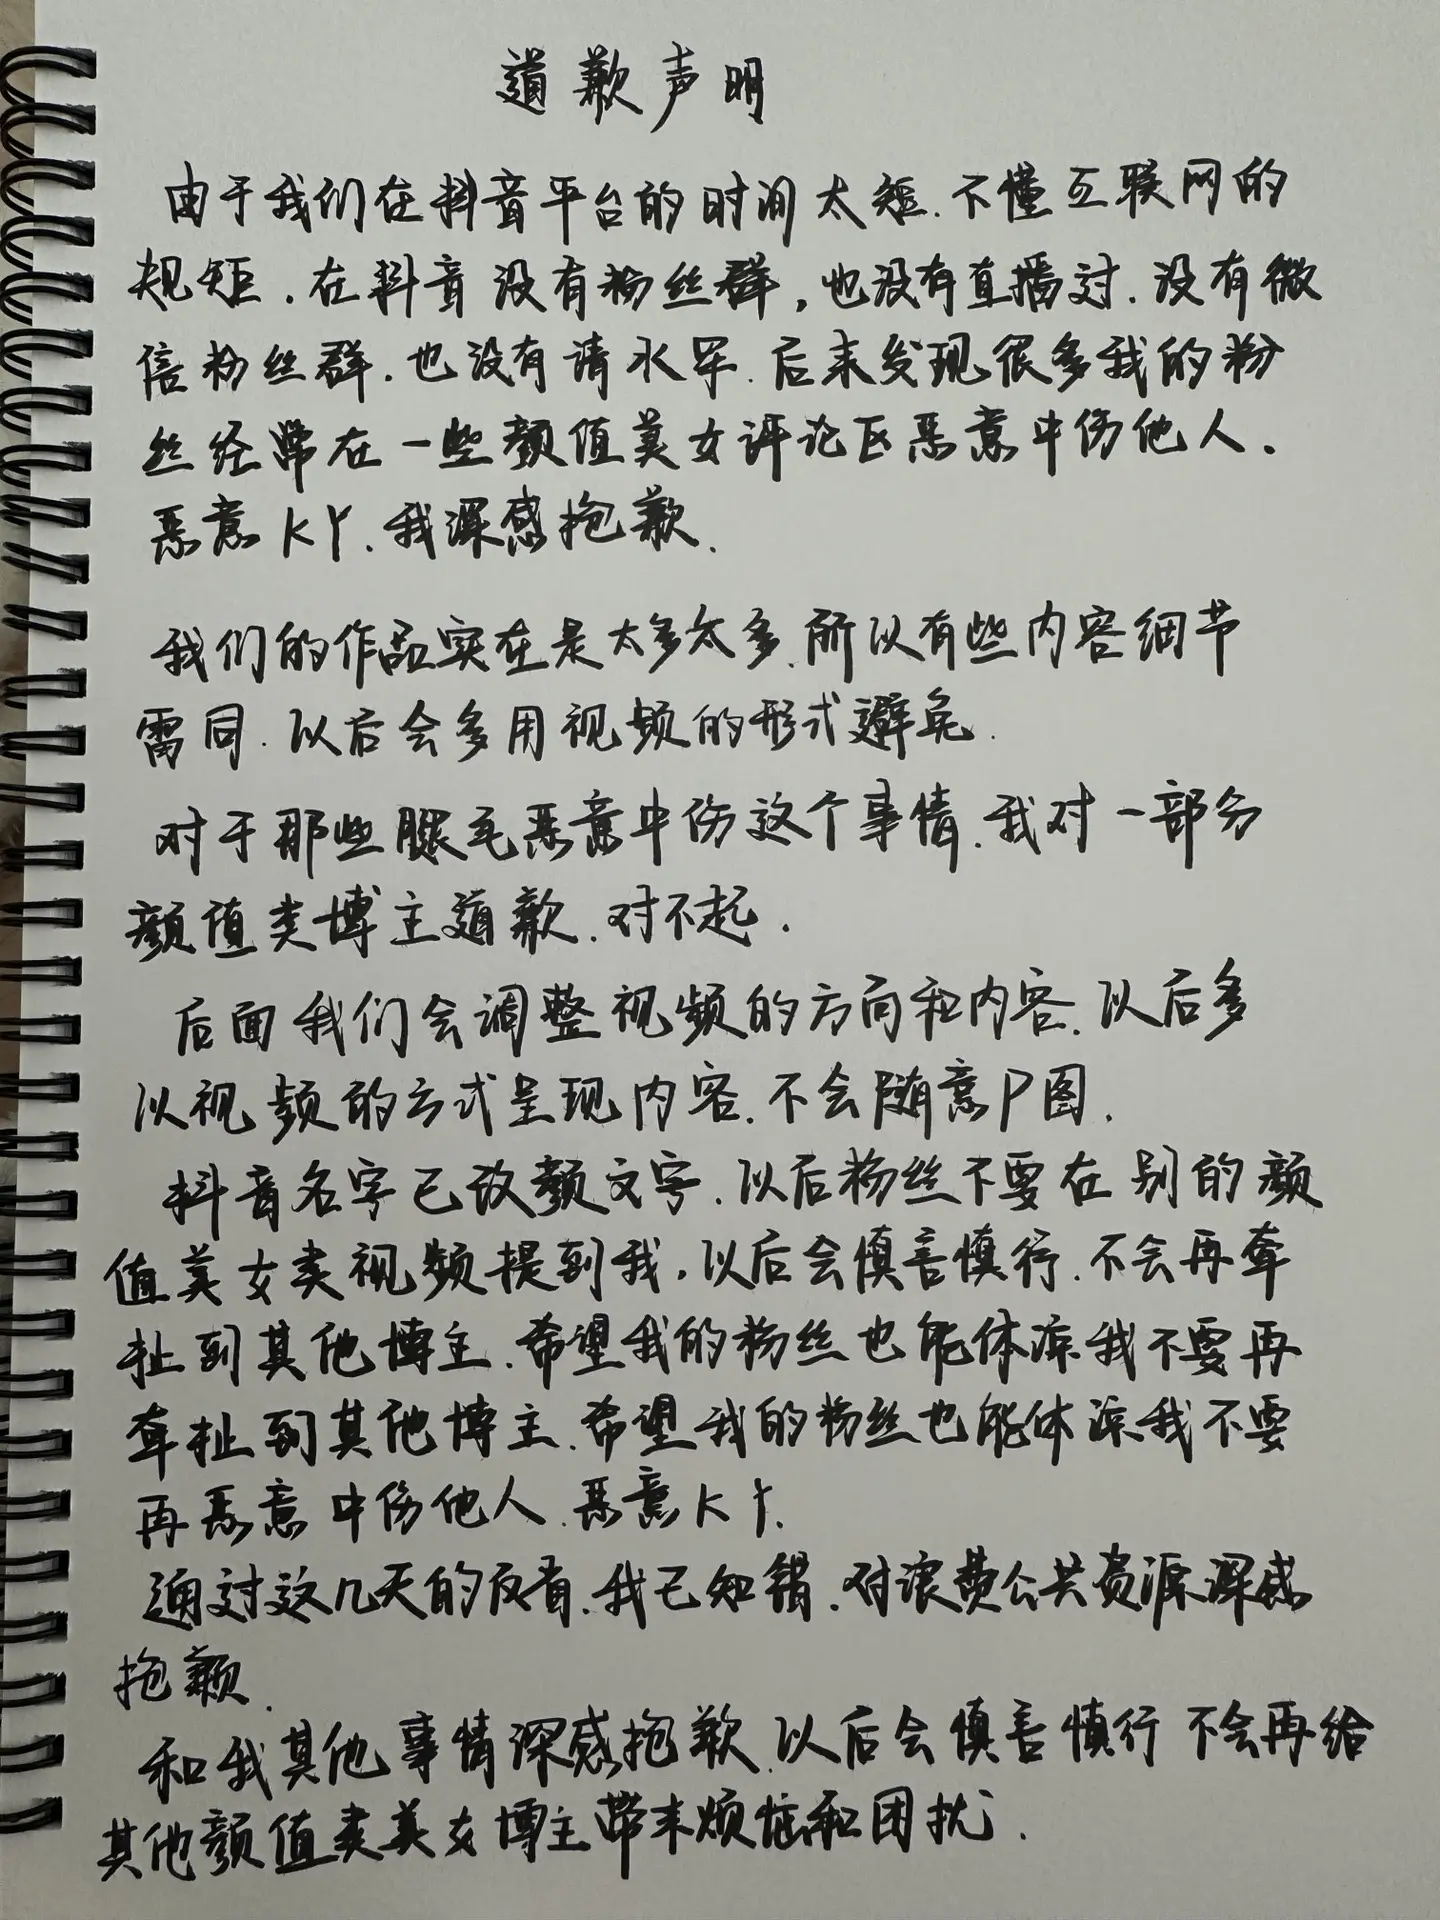 道歉声明
由于我们在抖音平台的时间太短.不懂互联网的
规矩.在抖音没有粉丝群,也没有直播过.没有微
信粉丝群.也没有请水军.后来发现很多我的粉
丝经常在一些颜值美女评论区恶意中伤他人.
恶意KY.我深感抱歉.
我们的作品实在是太多太多.所以有些内容细节
雷同.以后会多用视频的形式避免.
对于那些腿毛恶意中伤这个事情.我对一部分
颜值类博主道歉.对不起.
后面我们会调整视频的方向和内容.以后多
以视频的方式呈现内容.不会随意P图.
抖音名字已改颜文字.以后粉丝不要在别的颜
值美女类视频提到我.以后会慎言慎行.不会再牵
扯到其他博主.希望我的粉丝也能体谅我不要再
牵扯到其他博主.希望我的粉丝也能体谅我不要
再恶意中伤他人.恶意KY.
通过这几天的反省.我已知错.对浪费公共资源深感
抱歉.
和我其他事情深感抱歉.以后会慎言慎行不会再给
其他颜值类美女博主带来烦恼和困扰.